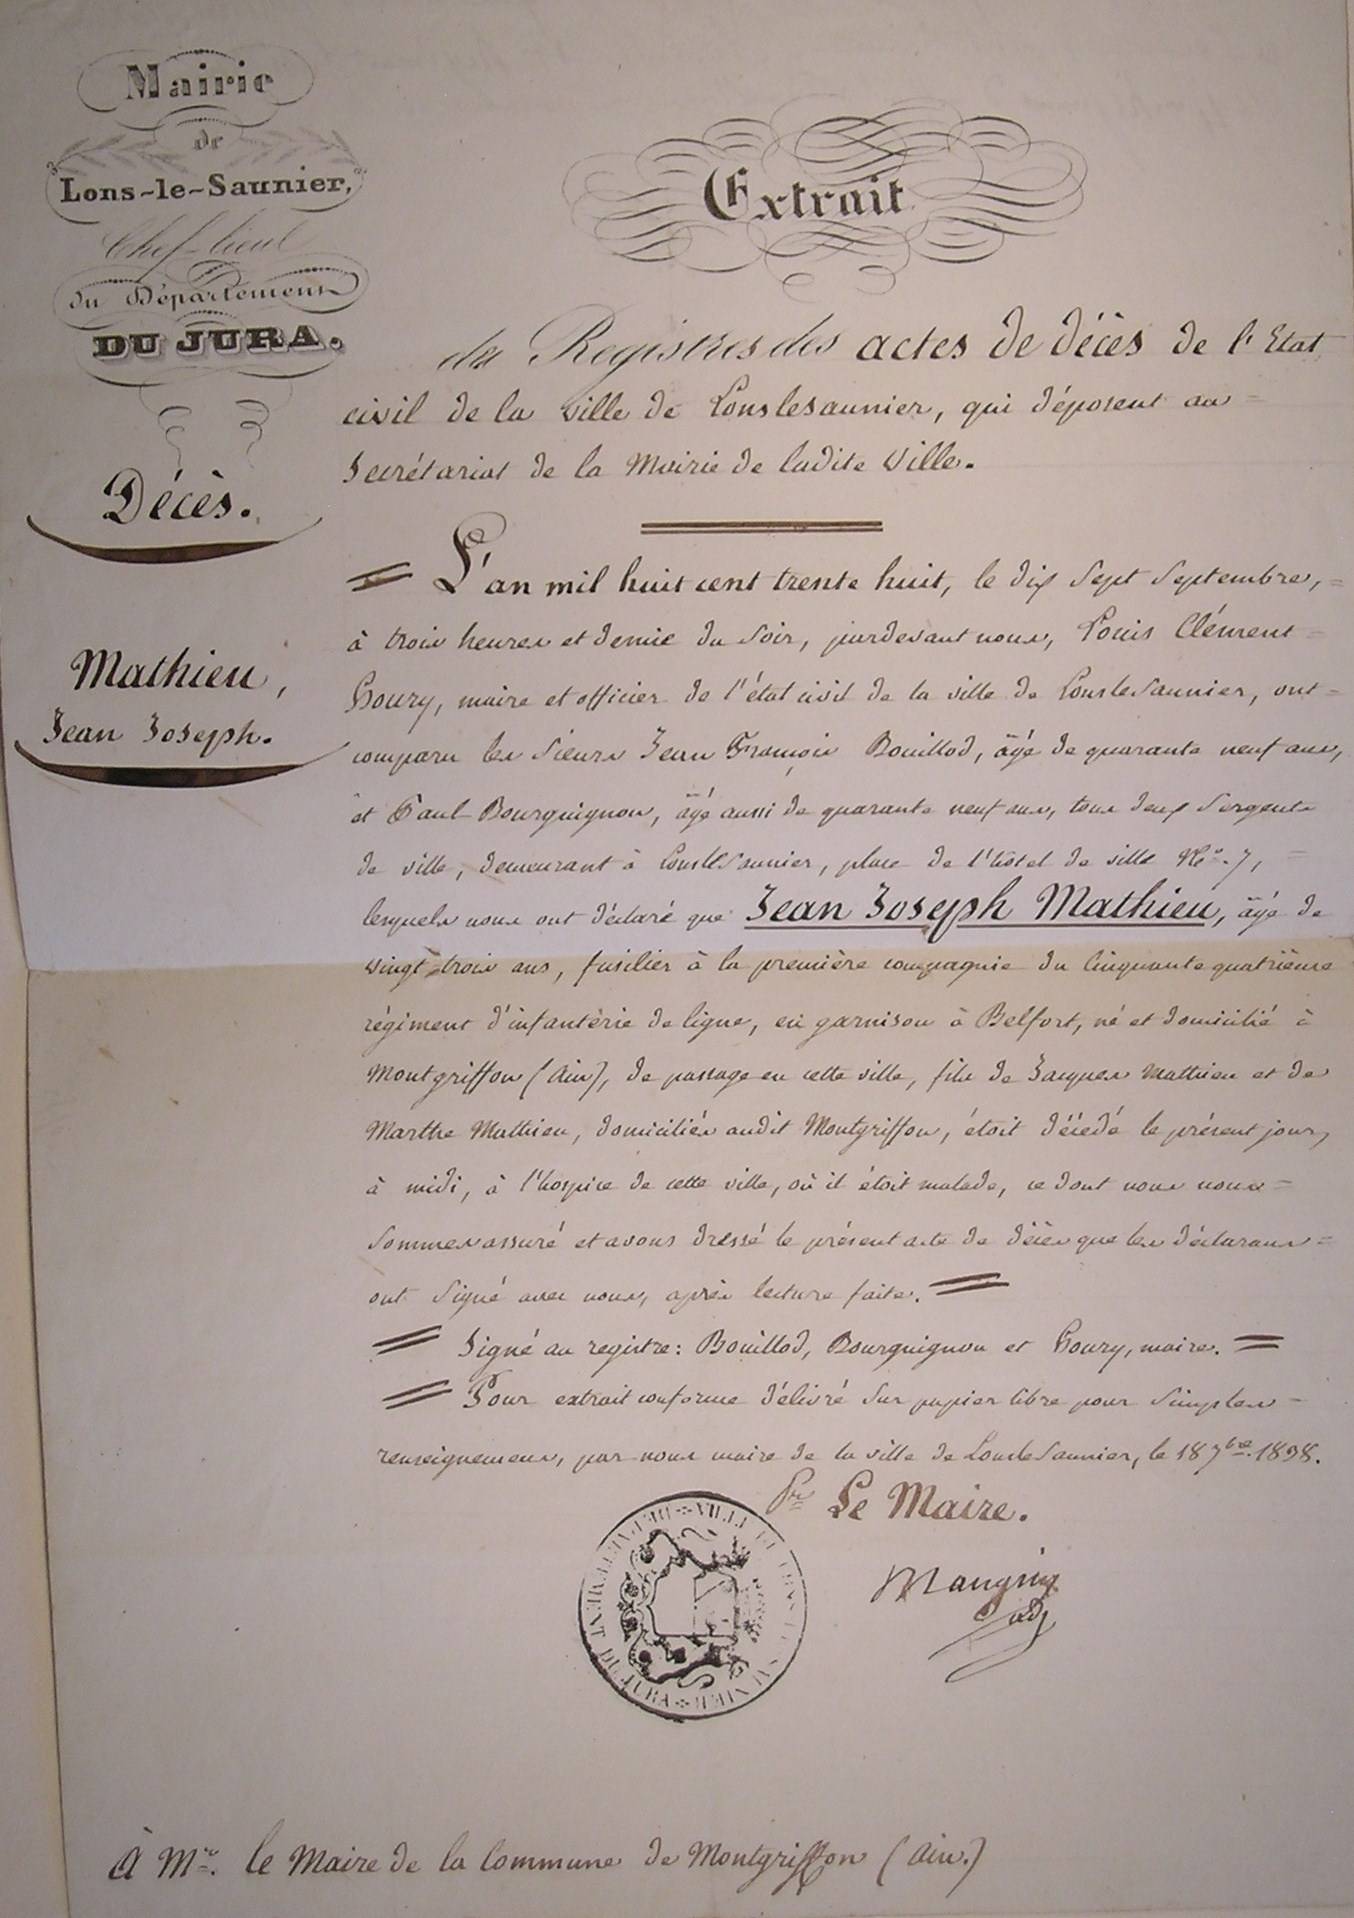 Mairie
de
Lons-le-Saunier,
Chef-lieu
du Département
DU JURA.
Extrait
du Registres des actes de décès de l'Etat
civil de la ville de Lonslesaunier, qui déposent au =
Secrétariat de la Mairie de ladite Ville.
Décès.
Mathieu,
Jean Joseph.
= L'an mil huit cent trente huit, le dix sept septembre, =
à trois heures et demie du soir, pardevant nous, Louis Clément =
Houry, maire et officier de l'état civil de la ville de Lonslesaunier, ont =
comparu les sieurs Jean François Bouillod, âgé de quarante neuf ans,
et Paul Bourguignon, âgé aussi de quarante neuf ans, tous deux Sergents
de ville, demeurant à Lonslesaunier, place de l'hôtel de ville No. 7, =
lesquels nous ont déclaré que Jean Joseph Mathieu, âgé de
vingt-trois ans, fusilier à la première compagnie du Cinquante quatrième
régiment d'infantérie de ligne, en garnison à Belfort, né et domicilié à
Montgriffon (Ain), de passage en cette ville, fils de Jacques Mathieu et de
Marthe Mathieu, domiciliés audit Montgriffon, étoit décédé le présent jour,
à midi, à l'hospice de cette ville, où il étoit malade, ce dont nous nous =
sommes assuré et avons dressé le présent acte de décès que les déclarans =
ont signé avec nous, après lecture faite. =
= Signé au registre: Bouillod, Bourguignon et Houry, maire. =
= Pour extrait conforme délivré sur papier libre pour simples =
renseignemens, par nous maire de la ville de Lonslesaunier, le 18 7bre 1838.
Pr Le Maire.
VILLE DE LONS LE SAUNIER
DEPARTEMENT DU JURA
Mangin
adj
À Mr. le Maire de la Commune de Montgriffon (Ain.)